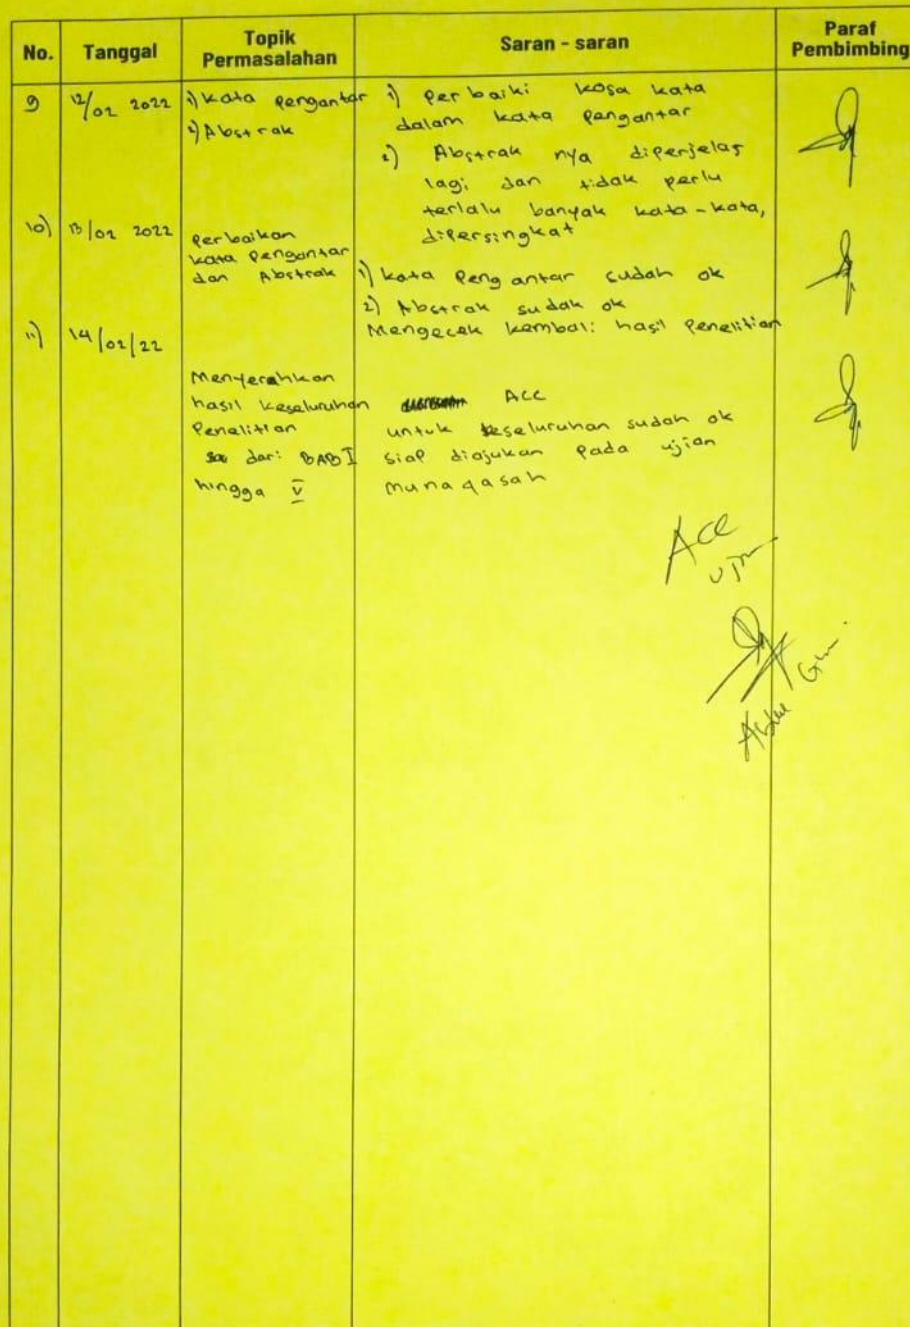 No. Tanggal Topik Permasalahan Saran - saran Paraf Pembimbing
9 12/02 2022 1) Kata pengantar 1) Perbaiki kosa kata
2) Abstrak dalam kata pengantar
2) Abstrak nya diperjelas
lagi dan tidak perlu
terlalu banyak kata-kata,
dipersingkat
10) 13/02 2022 Perbaikan
kata pengantar
dan Abstrak 1) kata pengantar sudah ok
2) Abstrak sudah ok
Mengecek kembali hasil penelitian
11) 14/02/22
Menyerahkan
hasil keseluruhan ACC
Penelitian untuk keseluruhan sudah ok
dari BAB I siap diajukan pada ujian
hingga V munaqasah
Acc
Ujn